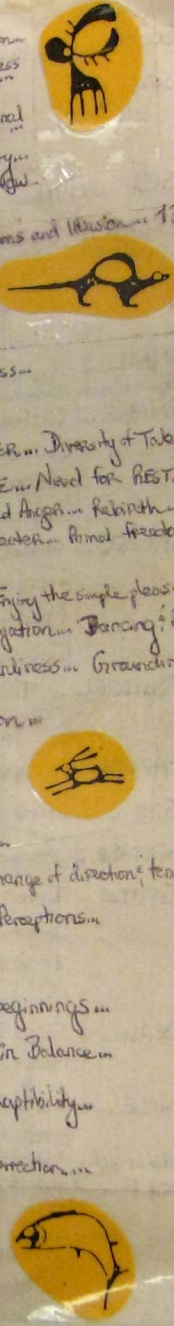 ess
nal
ons and Illusion... 13
ss...
ER... Diversity of
E... Need for REST
d Anger... Rebirth...
eater... Primal freedo
Enjoy the simple pleas
gation... Dancing!
nliness... Groundin
on...
hange of direction;
Perceptions...
eginnings...
in Balance...
aptibility...
rrection....